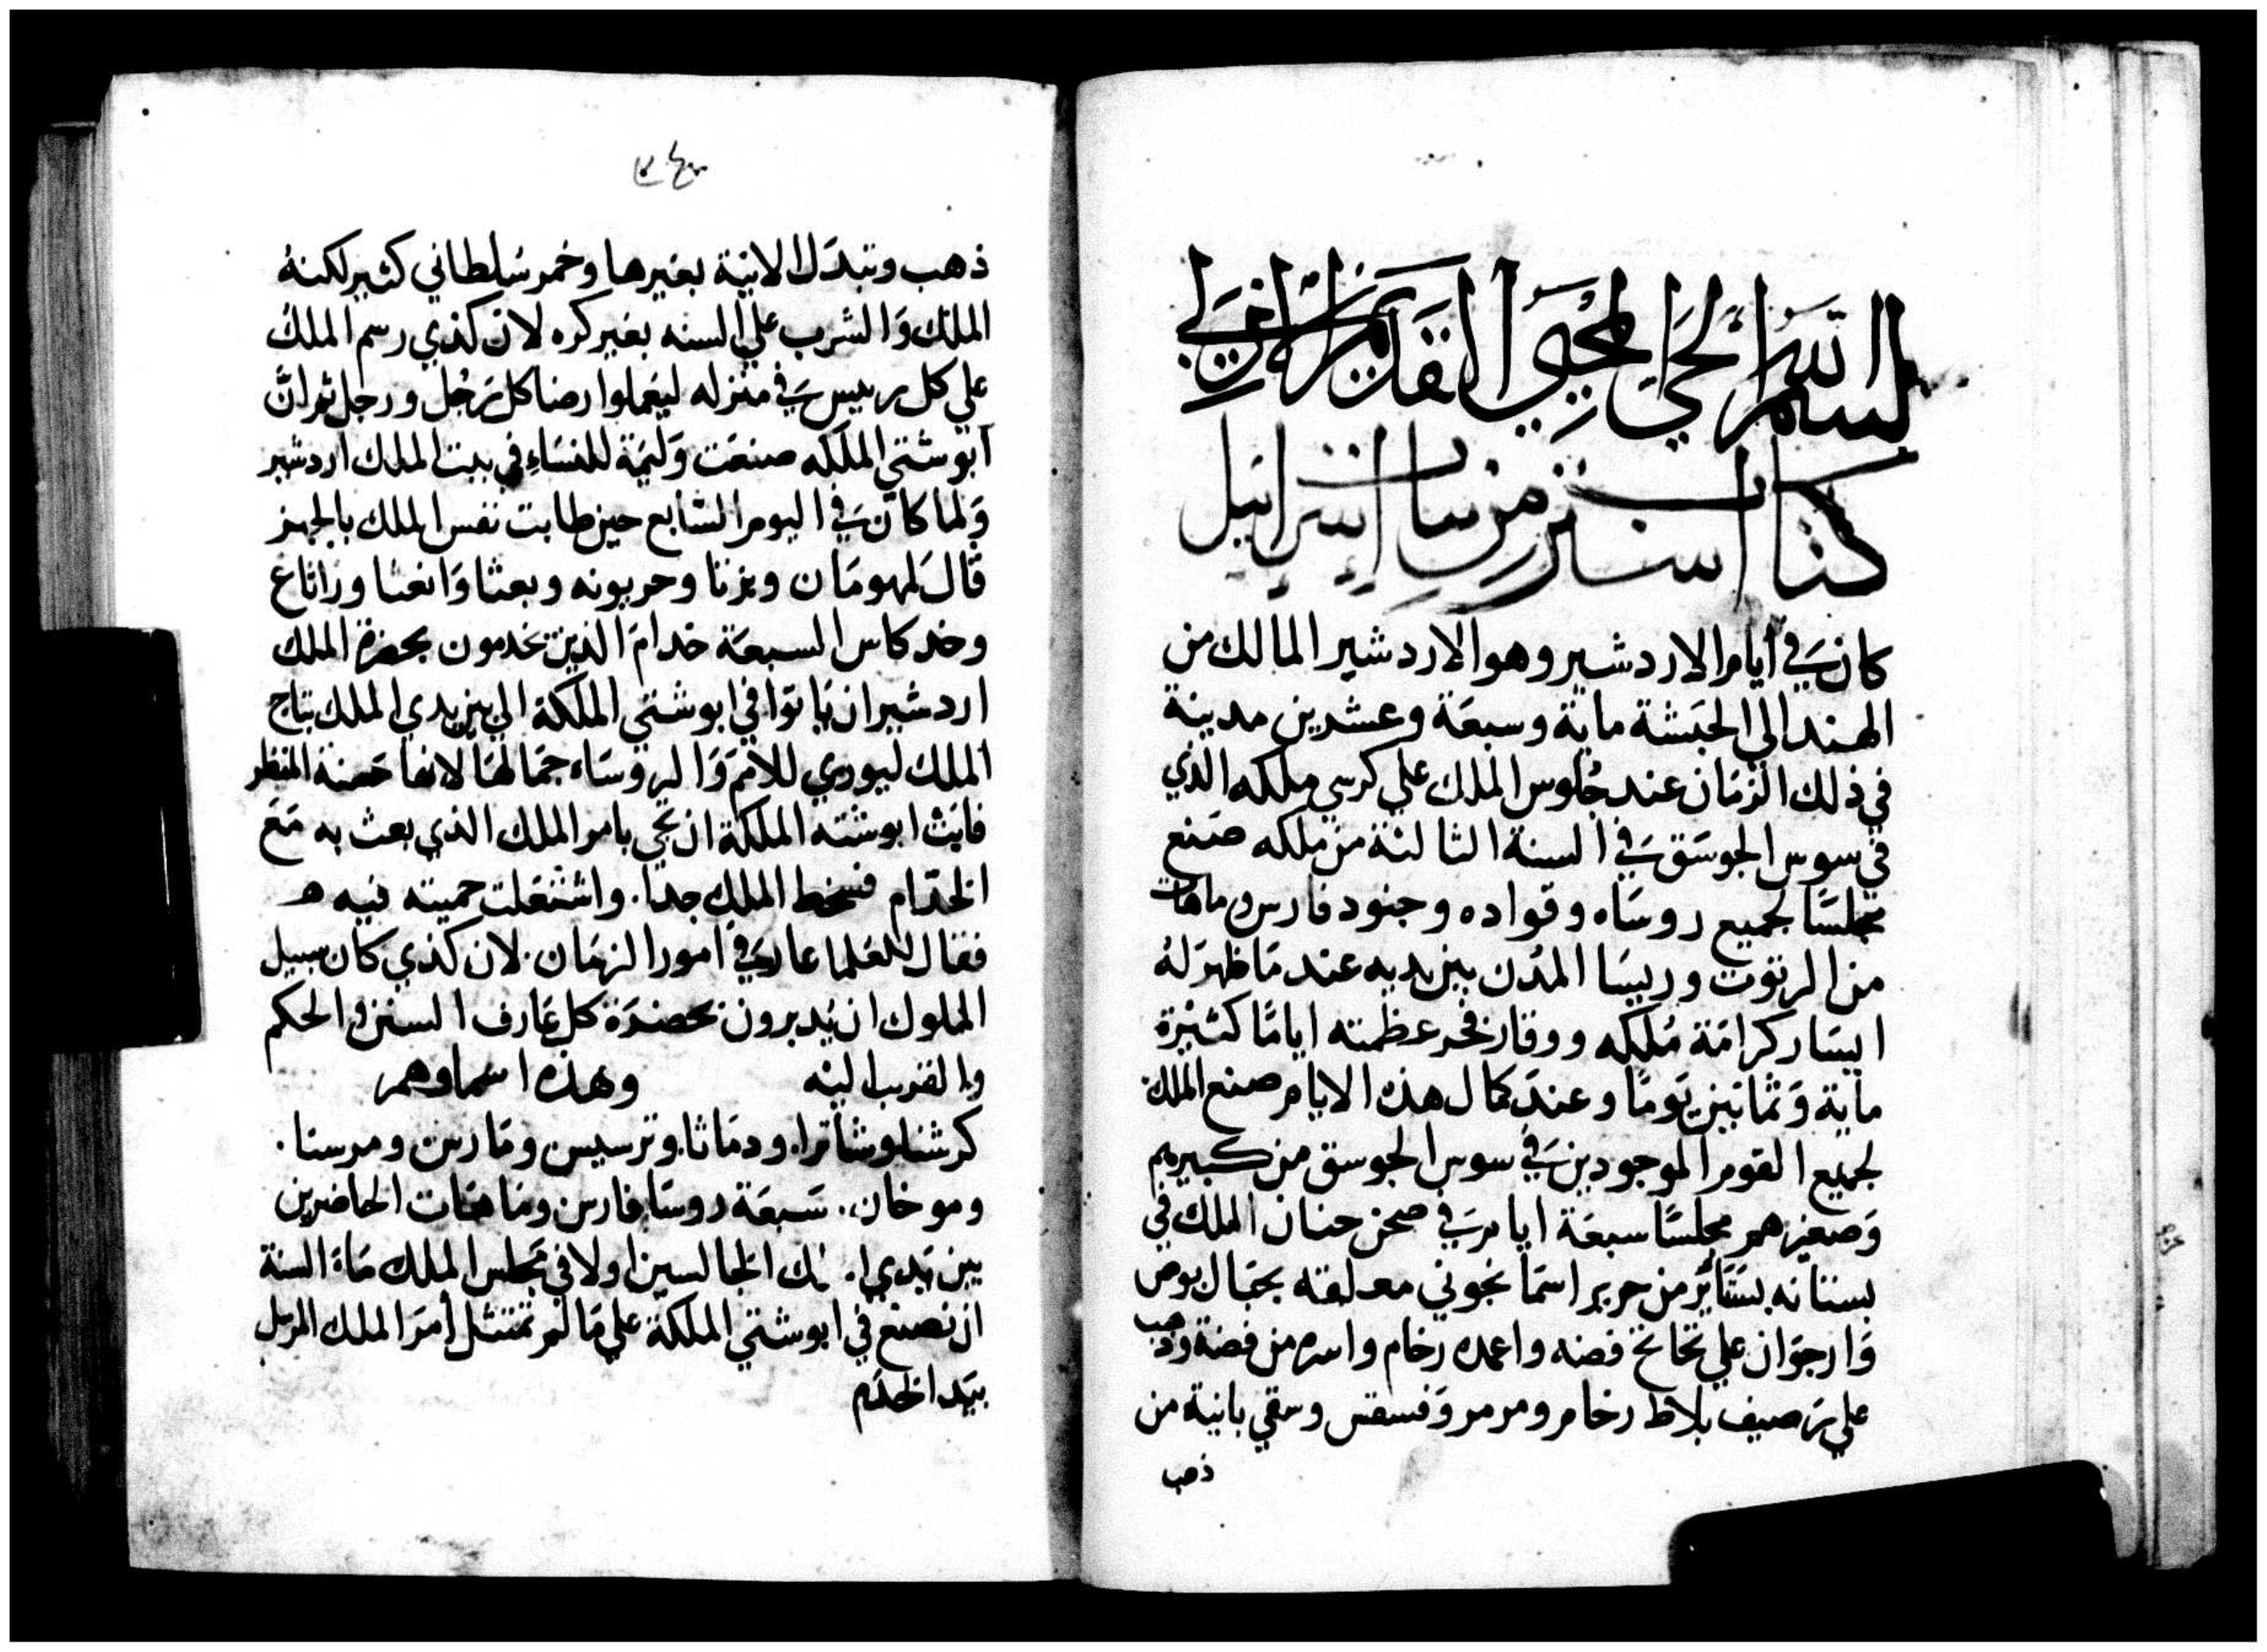 بسم الله الحي المحيي القديم الازلي
كتاب استير من سبي اسرايل
كان في أيام الاردشير وهو الاردشير المالك من
الهند الي الحبشة ماية وسبعة وعشرين مدينة
في ذلك الزمان عند جلوس الملك علي كرسي ملكه الذي
في سوس الجوسق في السنة الثالثة من ملكه صنع
مجلسًا لجميع روساه وقواده وجنود فارس وماهات
من الرتوت وريسا المدن بين يديه عند ما ظهر له
ايسار كرامة ملكه ووقار فخر عظمته ايامًا كثيرة
ماية وثمانين يومًا وعند كمال هذه الايام صنع الملك
لجميع القوم الموجودين في سوس الجوسق من كبيرهم
وصغيرهم مجلسًا سبعة ايام في صحن جنان الملك في
بستانه بستاير من حرير اسمانجوني معلقه بحبال بوص
وارجوان علي تخاتخ فضه واعمده رخام واسره من فضة وذهب
علي رصيف بلاط رخام ومرمر وفسقس وسقي بانية من
ذهب
ذهب وتبدل الانية بغيرها وخمر سلطاني كثير لكنه
الملك والشرب علي السنه بغير كره لان كذي رسم الملك
علي كل رييس في منزله ليعملوا رضا كل رجل ورجل ثم ان
ابوشتي الملكه صنعت وليمة للنساء في بيت الملك اردشير
ولما كان في اليوم السابع حين طابت نفس الملك بالخمر
قال لمهومان وبزتا وحربونه وبعثا وانغثا وزاثاغ
وخدكاس السبعة خدام الذين يخدمون بحضرة الملك
اردشير ان ياتوا في ابوشتي الملكة الي بين يدي الملك بتاج
الملك ليوري للامم والروساء جمالها لانها حسنة المنظر
فابت ابوشته الملكة ان تجي بامر الملك الذي بعث به مع
الخدام فسخط الملك جدا. واشتعلت حميته فيه
فقال للعلما عارفي امور الزمان. لان كذي كان سبيل
الملوك ان يدبرون بحضرة كل عارف السنن والحكم
والقريب اليه وهذه اسماوهم
كرشنا وشاترا. ودماثا. وترسيس ومارس ومرسنا.
وموخان. سبعة روسا فارس وماهات الحاضرين
بين يدي الملك الجالسين اولا في مجلس الملك ما السنة
ان نصنع في ابوشتي الملكة علي ما لم تمتثل أمر الملك المرسل
بيد الخدم